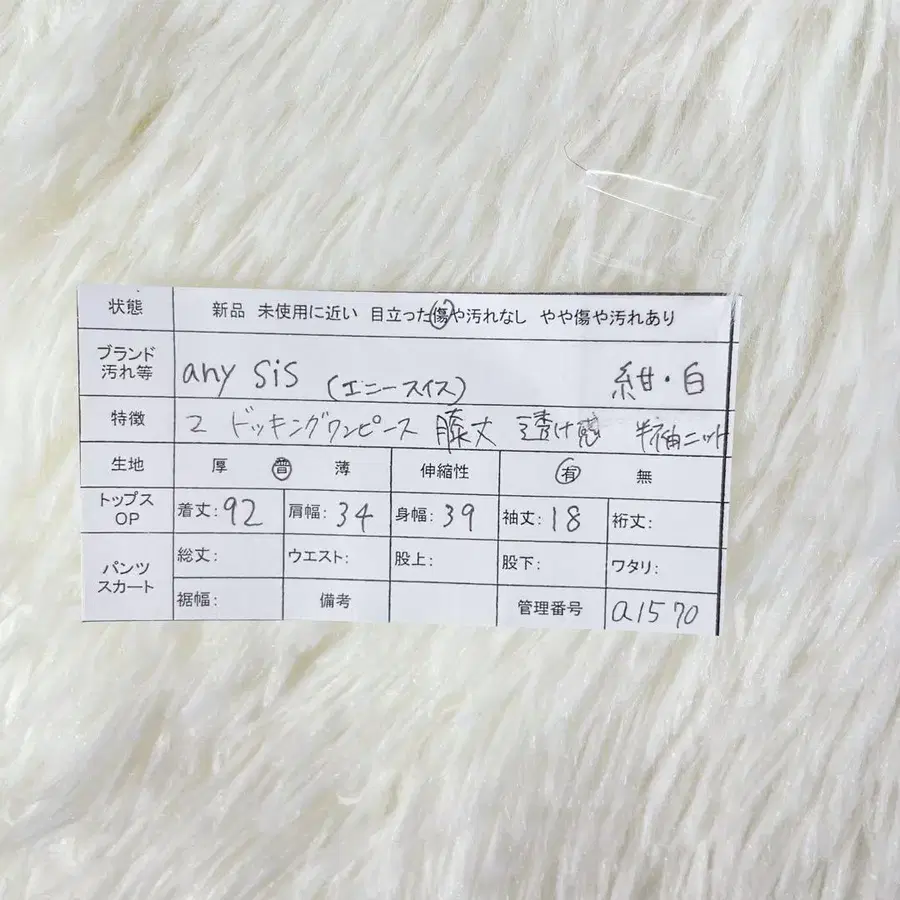 状態 新品 未使用に近い 目立った傷や汚れなし やや傷や汚れあり
ブランド
汚れ等 any SiS (エニースイス) 紺・白
特徴 2 ドッキングワンピース 膝丈 透け感 半袖ニット
生地 厚 普 薄 伸縮性 有 無
トップス
OP 着丈:92 肩幅:34 身幅:39 袖丈:18 裄丈:
パンツ
スカート 総丈: ウエスト: 股上: 股下: ワタリ:
裾幅: 備考 管理番号 a1570